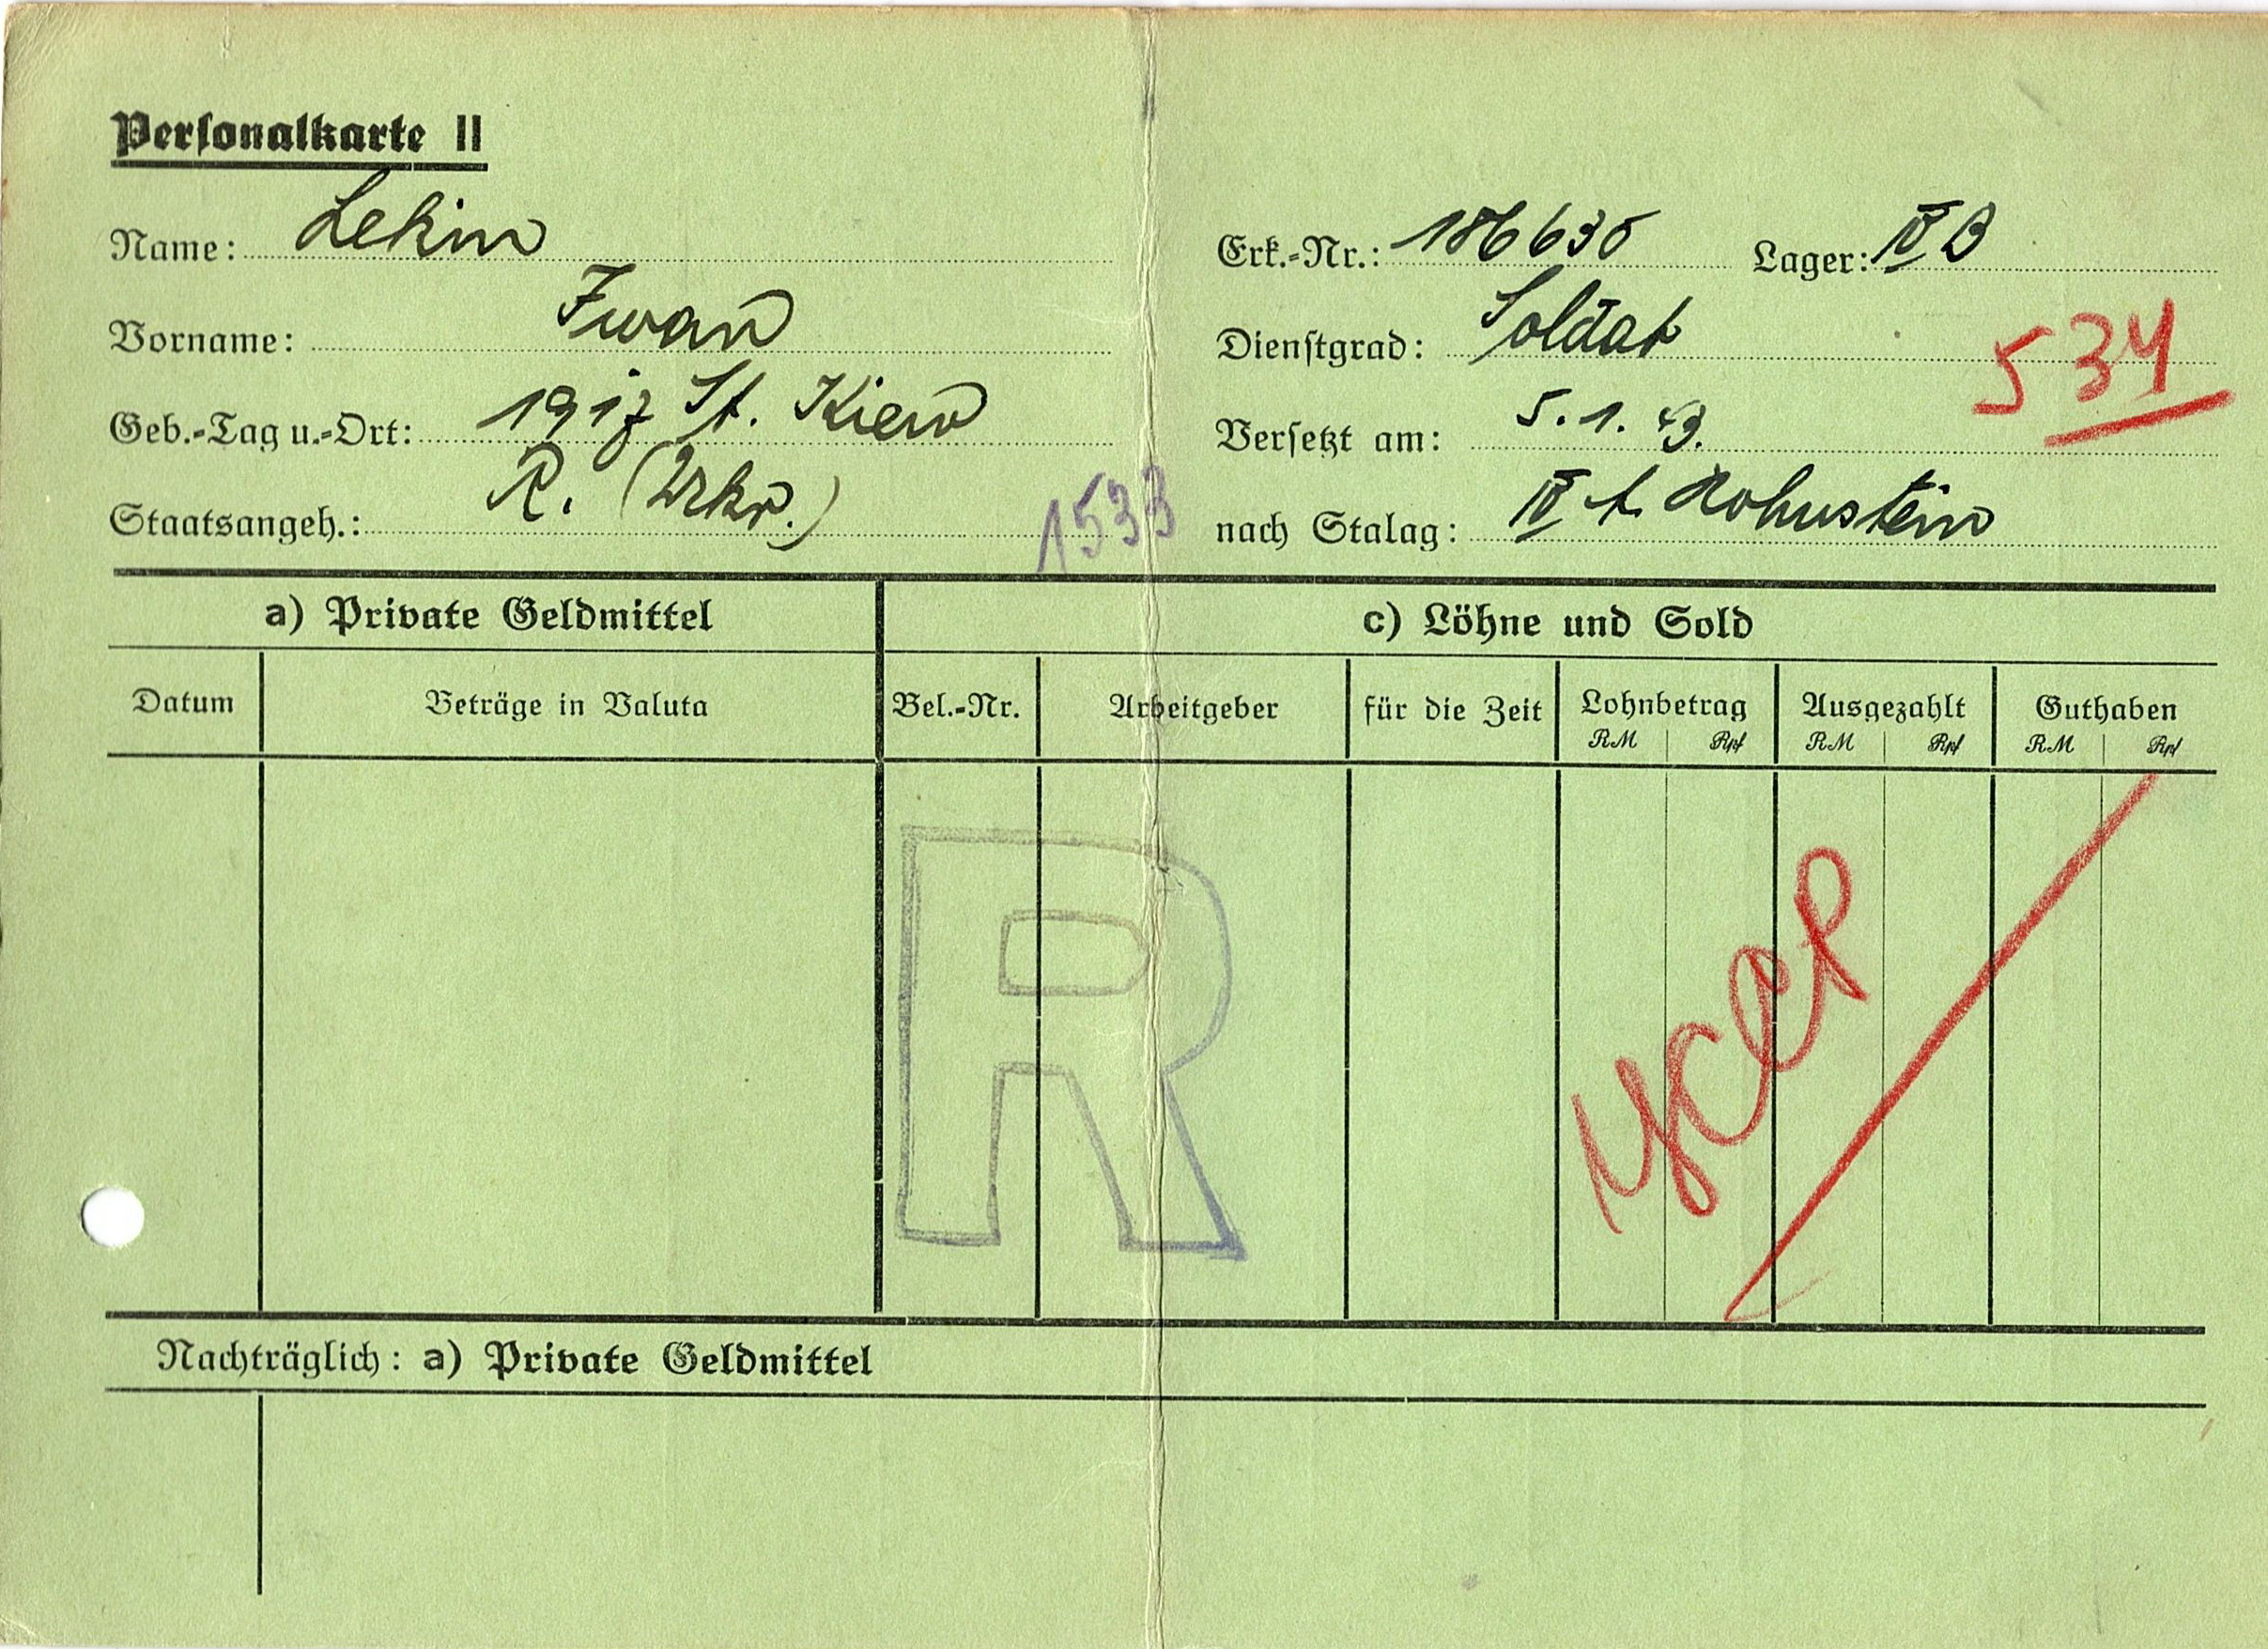 Personalkarte II
Name: Lekin
Vorname: Iwan
Geb.-Tag u.-Ort: 1917 St. Kiew
Staatsangeh.: R. (Ukr.)
1533
Erk.-Nr.: 186630 Lager: IV B
Dienstgrad: Soldat
534
Versetzt am: 5.1.43.
nach Stalag: IV A. Hohnstein
a) Private Geldmittel
c) Löhne und Sold
Datum Beträge in Valuta Bel.-Nr. Arbeitgeber für die Zeit Lohnbetrag Ausgezahlt Guthaben
RM Rpf RM Rpf RM Rpf
R
УССР
Nachträglich: a) Private Geldmittel